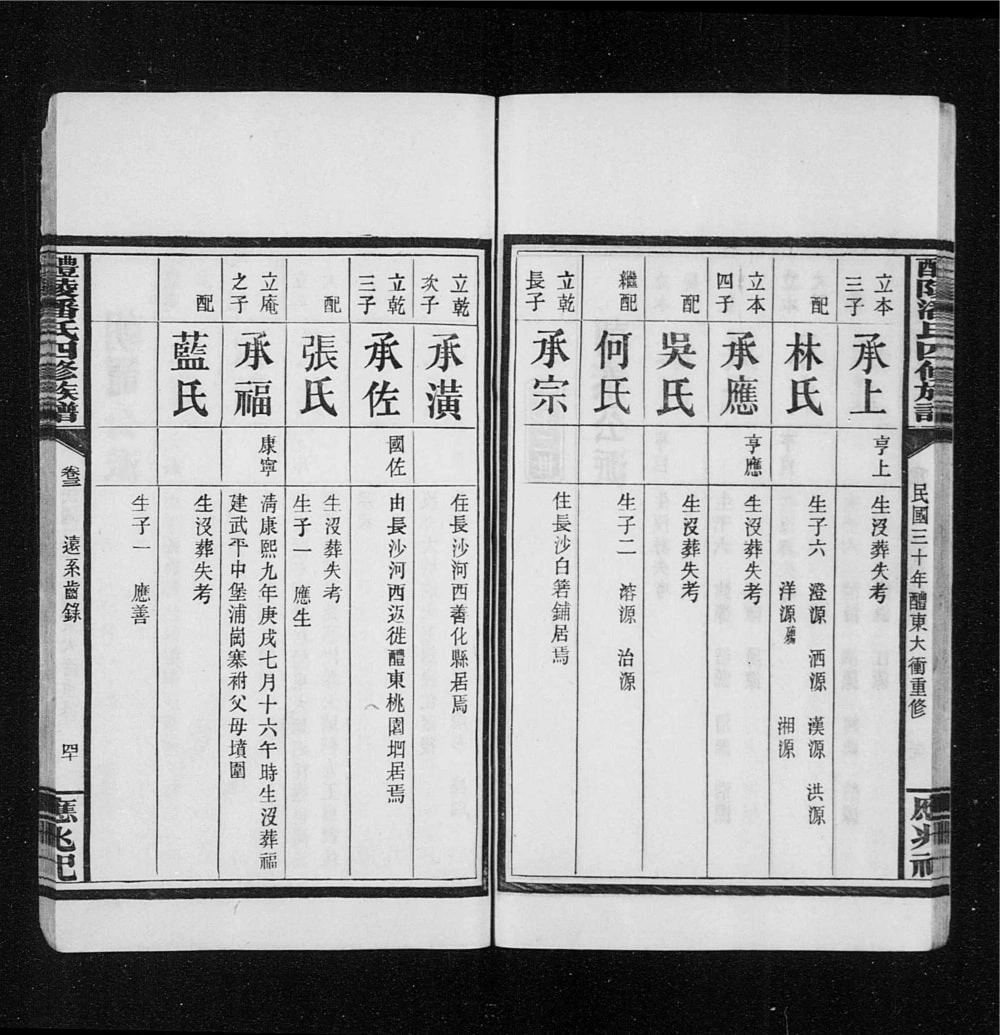 民國三十年醴東大衝重修
立本三子
承上
亨上
生沒葬失考
配
林氏
生子六 澄源 洒源 漢源 洪源
洋源 湘源
立本四子
承應
亨應
生沒葬失考
配
吳氏
生沒葬失考
繼配
何氏
生子二 溶源 治源
立乾長子
承宗
住長沙白箬鋪居焉
立乾次子
承潢
住長沙河西善化縣居焉
立乾三子
承佐
國佐
由長沙河西返徙醴東桃園垇居焉
配
張氏
生沒葬失考
生子一 應生
立庵之子
承福
康寧
清康熙九年庚戌七月十六午時生沒葬福
建武平中堡浦崗寨祔父母墳圍
配
藍氏
生沒葬失考
生子一 應善
醴陵潘氏四修族譜
卷三 遠系齒錄
四十
應兆祀